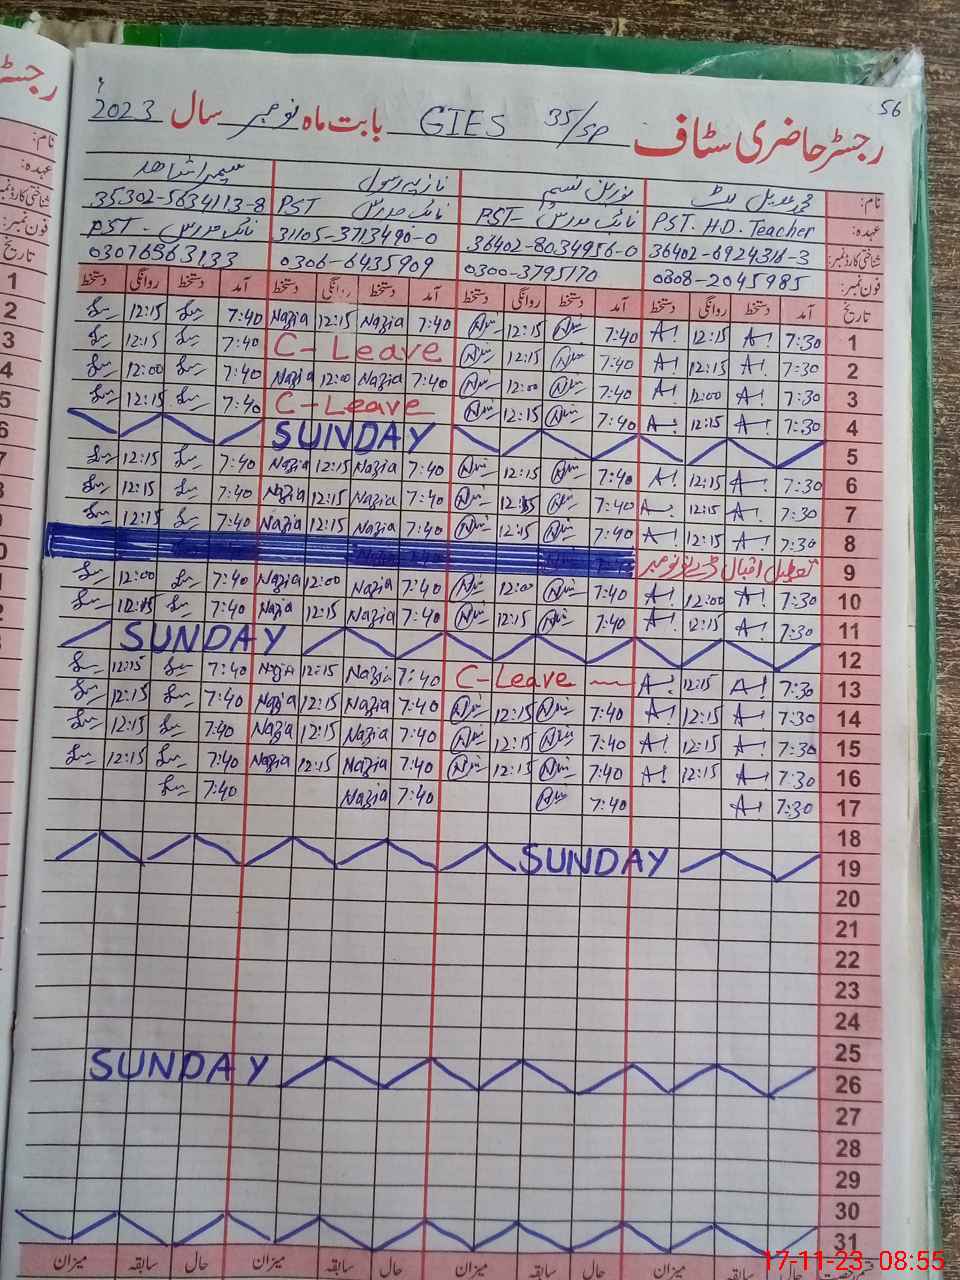 56
رجسٹر حاضری سٹاف 35/SP GIES بابت ماہ نومبر سال 2023
نام: محمد عدیل بٹ نورین نسیم نازیہ رسول سمیرا شاھد
عہدہ: PST. H.D. Teacher نائک مدرس PST- نائک مدرس PST 35302-5634113-8
شناختی کارڈ نمبر: 36402-6924316-3 36402-8034956-0 31105-3713490-0 نائک مدرس PST-
فون نمبر: 0308-2045985 0300-3795170 0306-6435909 03076863133
تاریخ آمد دستخط روانگی دستخط آمد دستخط روانگی دستخط آمد دستخط روانگی دستخط آمد دستخط روانگی دستخط
1 7:30 A! 12:15 A! 7:40 12:15 7:40 Nazia 12:15 Nazia 7:40 12:15
2 7:30 A! 12:15 A! 7:40 12:15 C-Leave 7:40 12:15
3 7:30 A! 12:00 A! 7:40 12:00 7:40 Nazia 12:00 Nazia 7:40 12:00
4 7:30 A! 12:15 A! 7:40 12:15 C-Leave 7:40 12:15
5 SUNDAY
6 7:30 A! 12:15 A! 7:40 12:15 7:40 Nazia 12:15 Nazia 7:40 12:15
7 7:30 A! 12:15 A! 7:40 12:15 7:40 Nazia 12:15 Nazia 7:40 12:15
8 7:30 A! 12:15 A! 7:40 12:15 7:40 Nazia 12:15 Nazia 7:40 12:15
9 تعطیل اقبال ڈے نو نومبر
10 7:30 A! 12:00 A! 7:40 12:00 7:40 Nazia 12:00 Nazia 7:40 12:00
11 7:30 A! 12:15 A! 7:40 12:15 7:40 Nazia 12:15 Nazia 7:40 12:15
12 SUNDAY
13 7:30 A! 12:15 A! C-Leave 7:40 Nazia 12:15 Nazia 7:40 12:15
14 7:30 A! 12:15 A! 7:40 12:15 7:40 Nazia 12:15 Nazia 7:40 12:15
15 7:30 A! 12:15 A! 7:40 12:15 7:40 Nazia 12:15 Nazia 7:40 12:15
16 7:30 A! 12:15 A! 7:40 12:15 7:40 Nazia 12:15 Nazia 7:40 12:15
17 7:30 A! 7:40 7:40 Nazia 7:40
18
19 SUNDAY
20
21
22
23
24
25
26 SUNDAY
27
28
29
30
31
حال سابقہ میزان حال سابقہ میزان حال سابقہ میزان حال سابقہ میزان
17-11-23 08:55